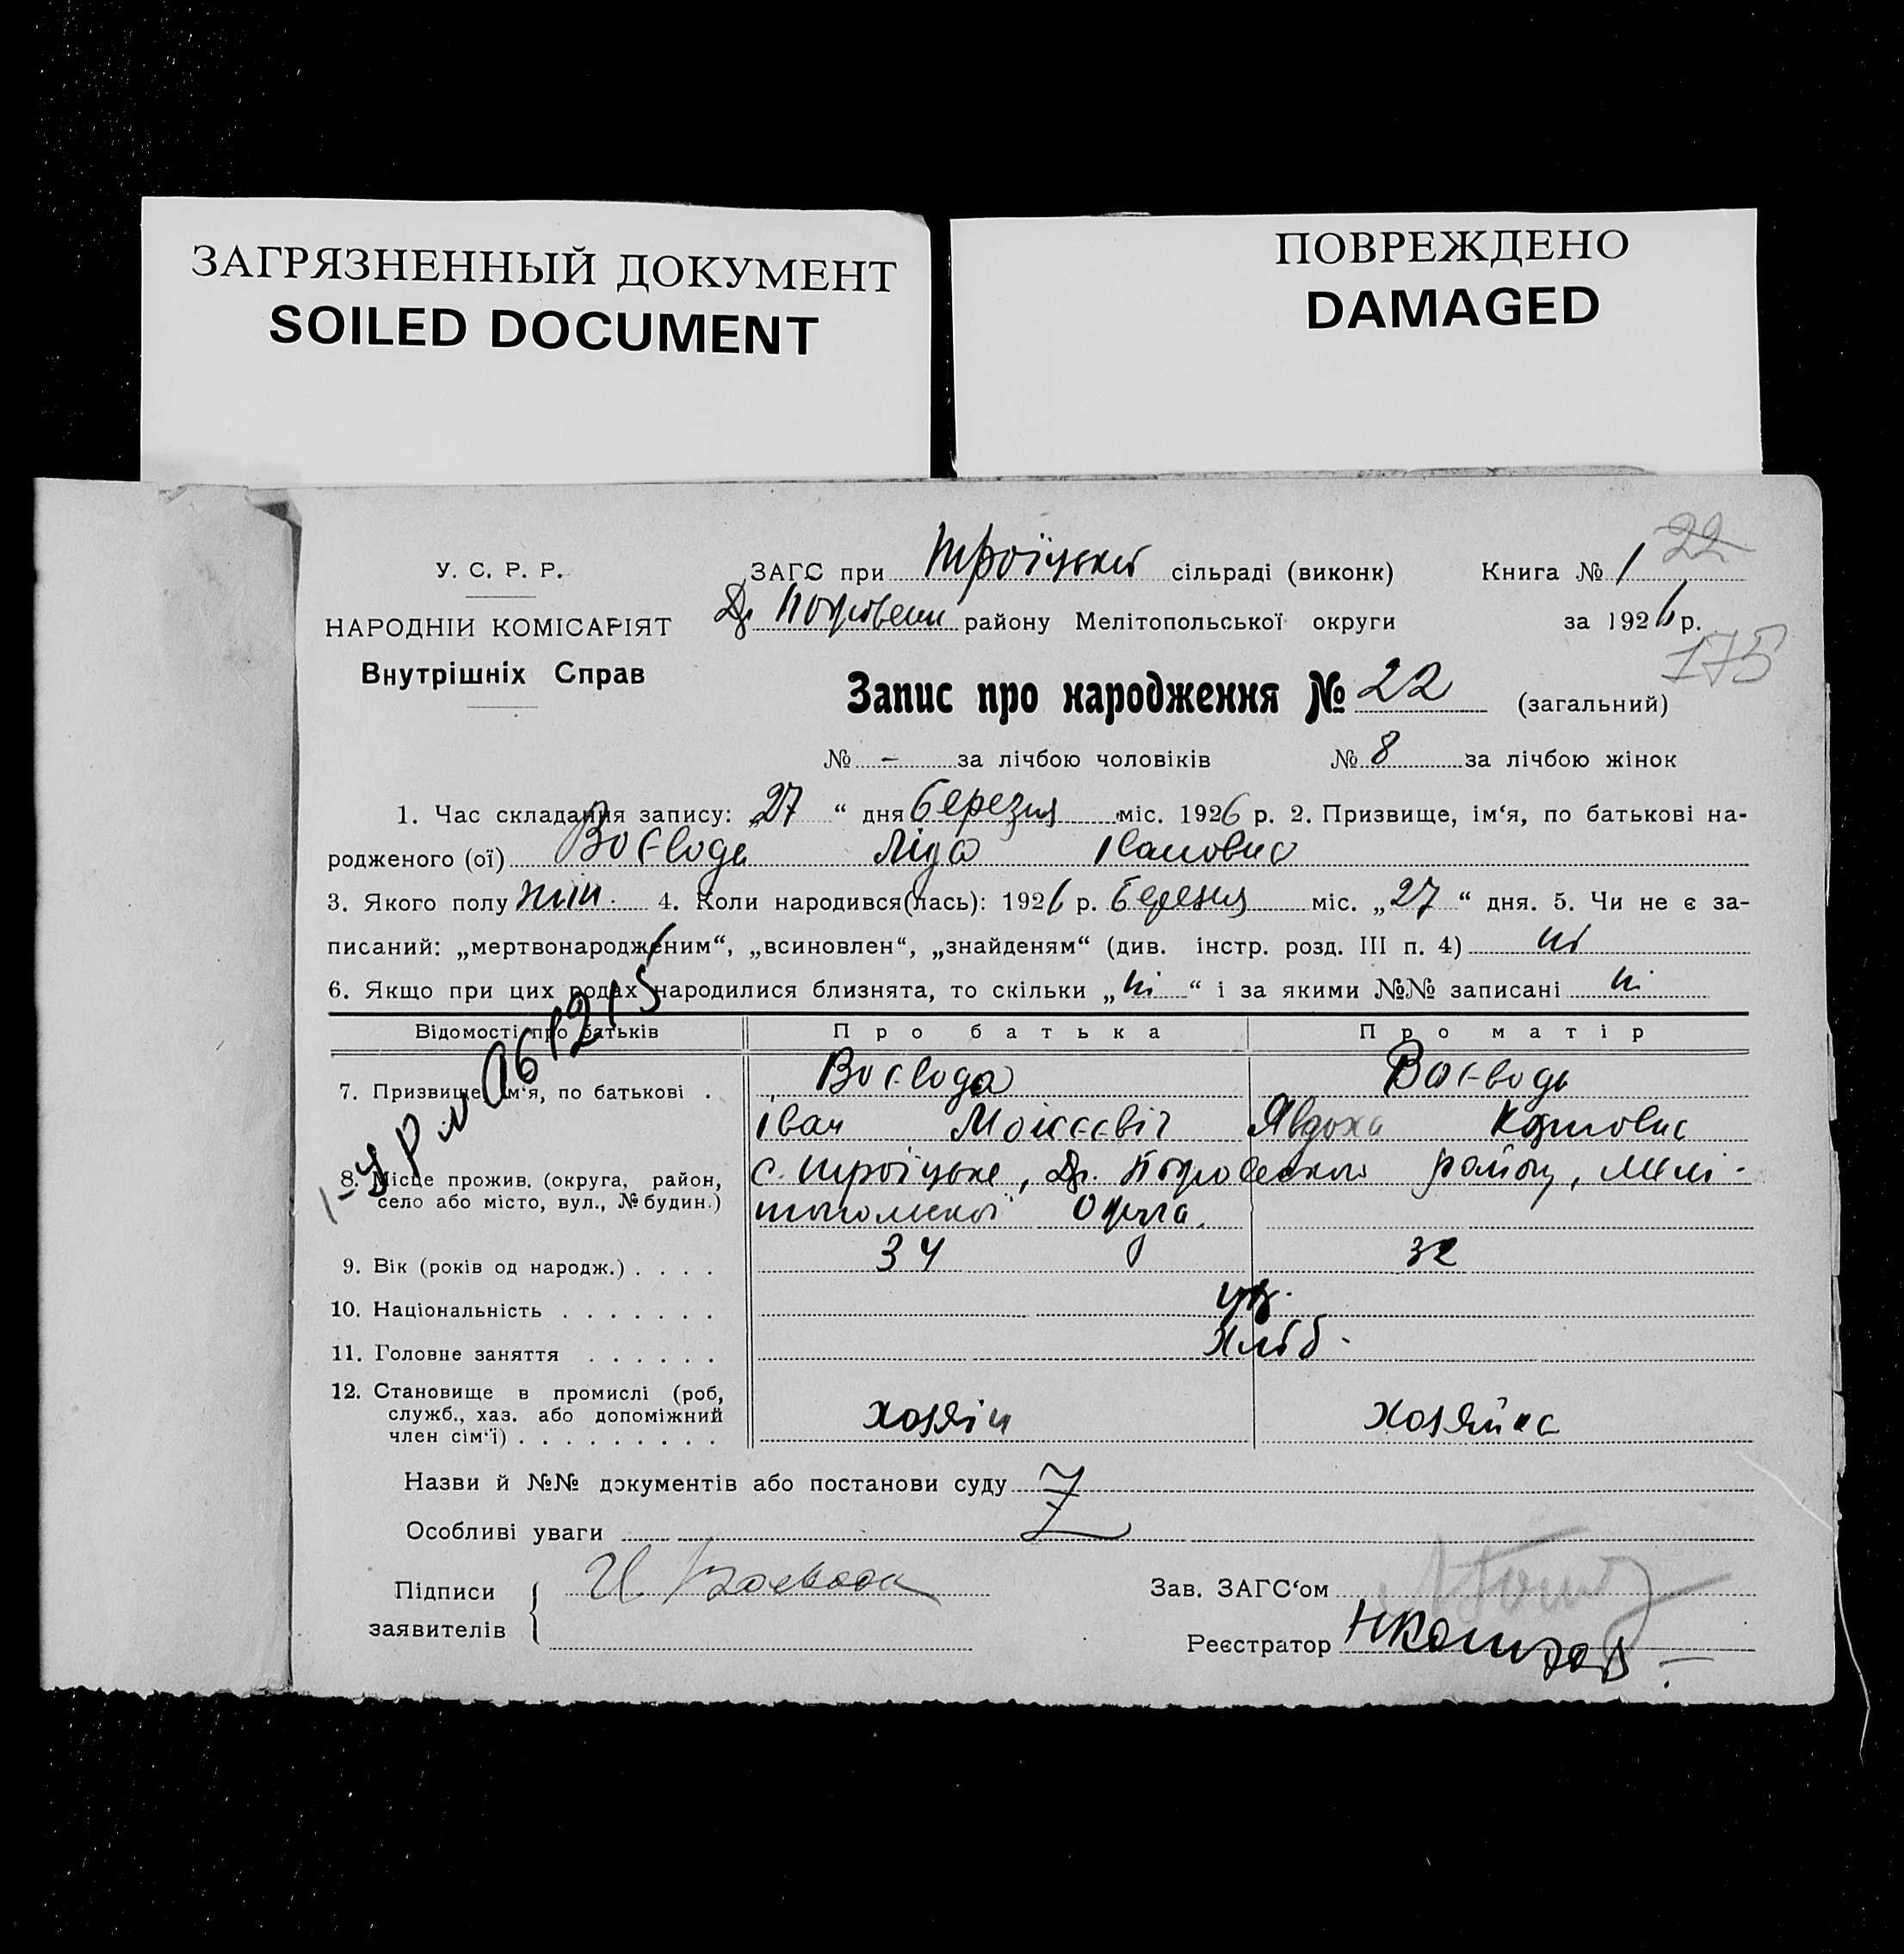 ЗАГРЯЗНЕННЫЙ ДОКУМЕНТ
SOILED DOCUMENT
ПОВРЕЖДЕНО
DAMAGED
22
У. С. Р. Р.
НАРОДНІЙ КОМІСАРІЯТ
Внутрішніх Справ
ЗАГС при Троїцькій сільраді (виконк) Книга № 1
району Мелітопольської округи за 1926 р.
175
Запис про народження № 22 (загальний)
№ - за лічбою чоловіків № 8 за лічбою жінок
1. Час складання запису: „27“ дня березня міс. 1926 р. 2. Призвище, ім‘я, по батькові на-
родженого (ої) Воєвода Ліда Івановна
3. Якого полу жін. 4. Коли народився(лась): 1926 р. березня міс. „27“ дня. 5. Чи не є за-
писаний: „мертвонародженим“, „всиновлен“, „знайденям“ (див. інстр. розд. III п. 4) ні
6. Якщо при цих родах народилися близнята, то скільки „ні“ і за якими №№ записані ні
Відомості про батьків Про батька Про матір
7. Призвище, ім‘я, по батькові . Воєвода Воєвода
Іван Моісєєвіч Явдоха
8. Місце прожив. (округа, район, с. Троїцьке, району, Мелі-
село або місто, вул., № будин.) топольської Округа.
9. Вік (років од народж.) . . . . 34 32
10. Національність . . . . . . . укр.
11. Головне заняття . . . . . . Хліб.
12. Становище в промислі (роб, хозяін хозяйка
служб., хаз. або допоміжний
член сім‘ї) . . . . . . . . .
Назви й №№ документів або постанови суду
Особливі уваги
Підписи И. Воевода Зав. ЗАГС‘ом
заявителів Реєстратор